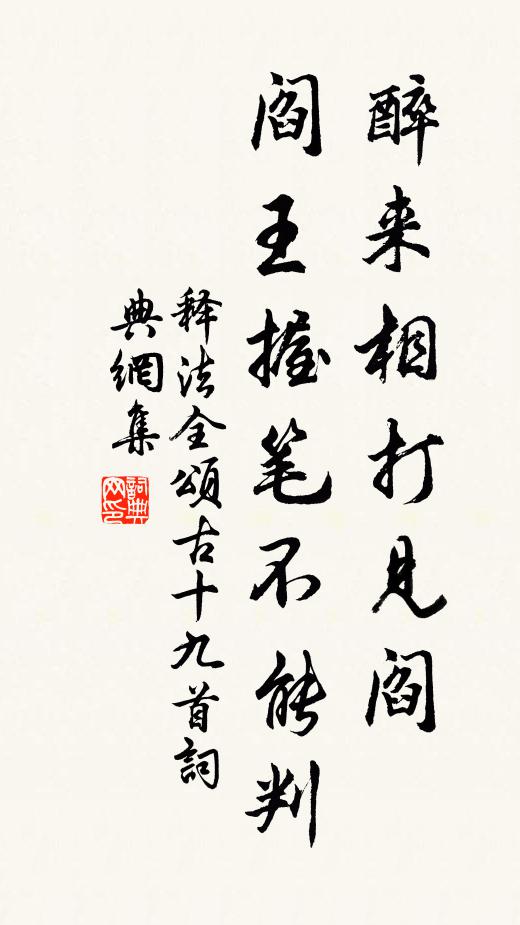 醉来相打见阎
阎王握笔不能判
释法全颂古十九首詞
典網集
詞典网印